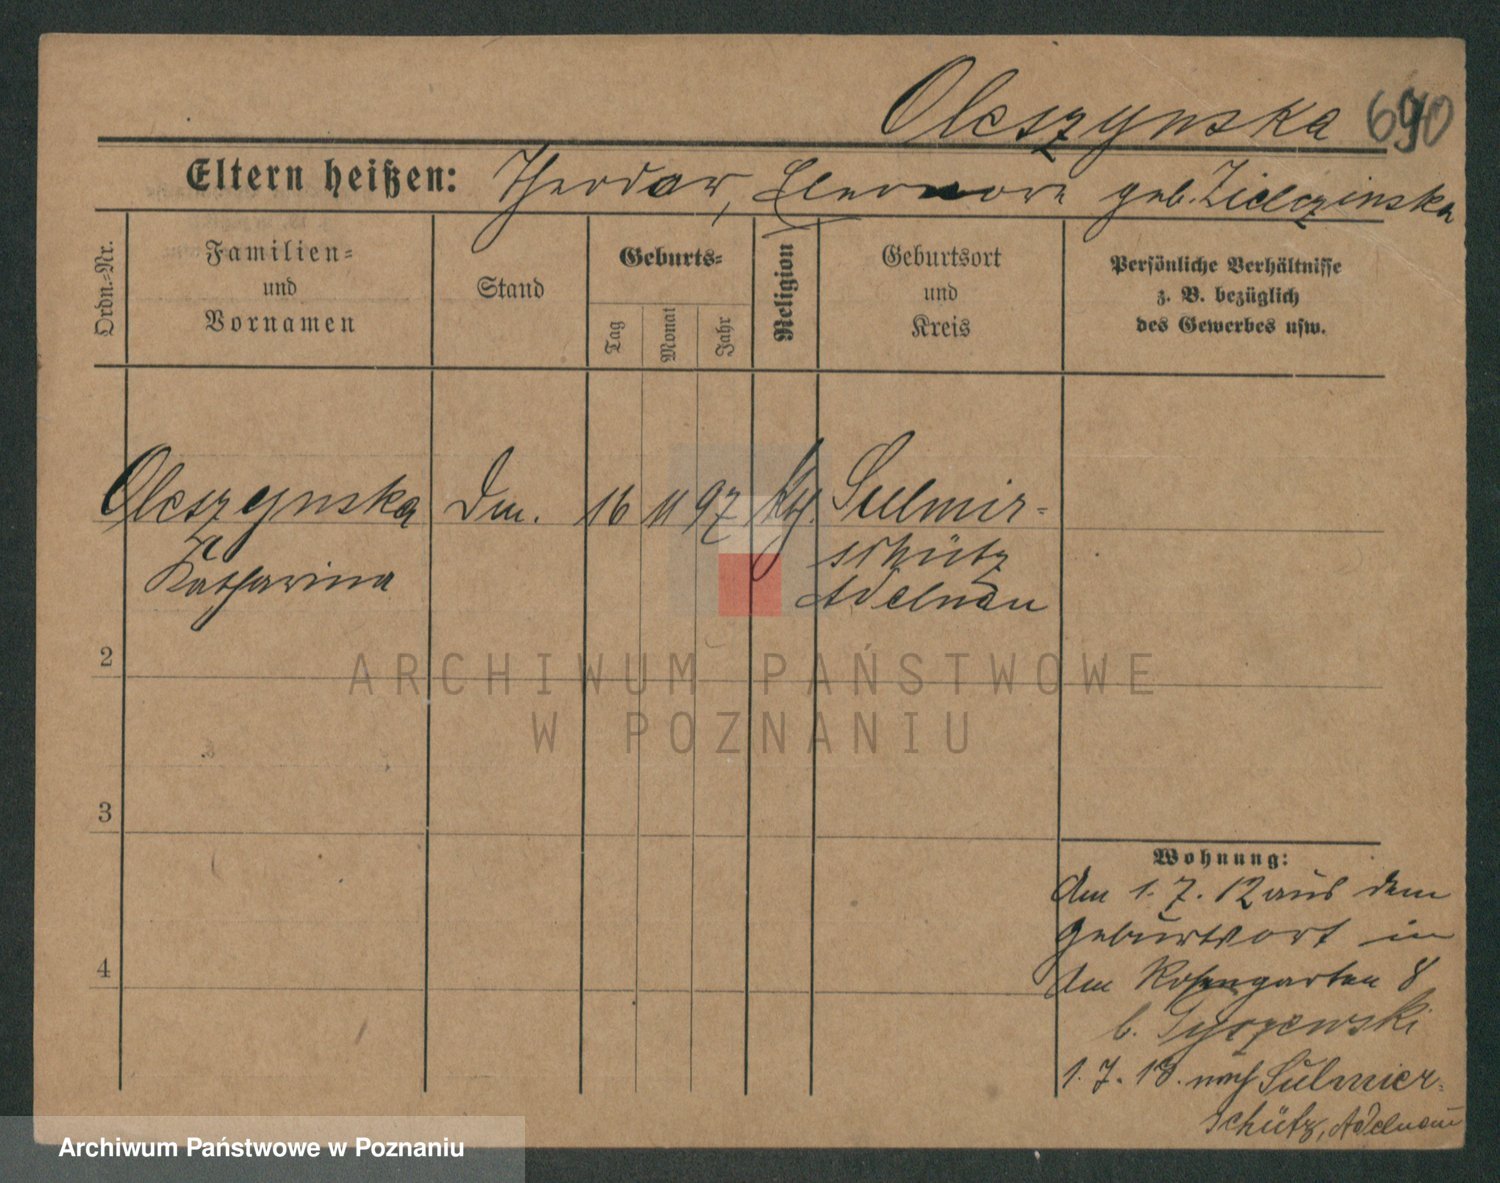 Oleszynska 690
Eltern heißen: Theodor, Eleonore geb. Zielezinska
Ordn.-Nr.
Familien-
und
Vornamen
Stand
Geburts-
Tag
Monat
Jahr
Religion
Geburtsort
und
Kreis
Persönliche Verhältnisse
z. B. bezüglich
des Gewerbes usw.
Oleszynska Dm. 16 11 97 Sulmir-
schütz
Katharina
Adelnau
2
3
4
ARCHIWUM PAŃSTWOWE
W POZNANIU
Wohnung:
Am 1. 7. 12 aus dem
Geburtsort in
Am Rosengarten 8
b.
1. 7. 13. nach Sulmier-
schütz, Adelnau
Archiwum Państwowe w Poznaniu